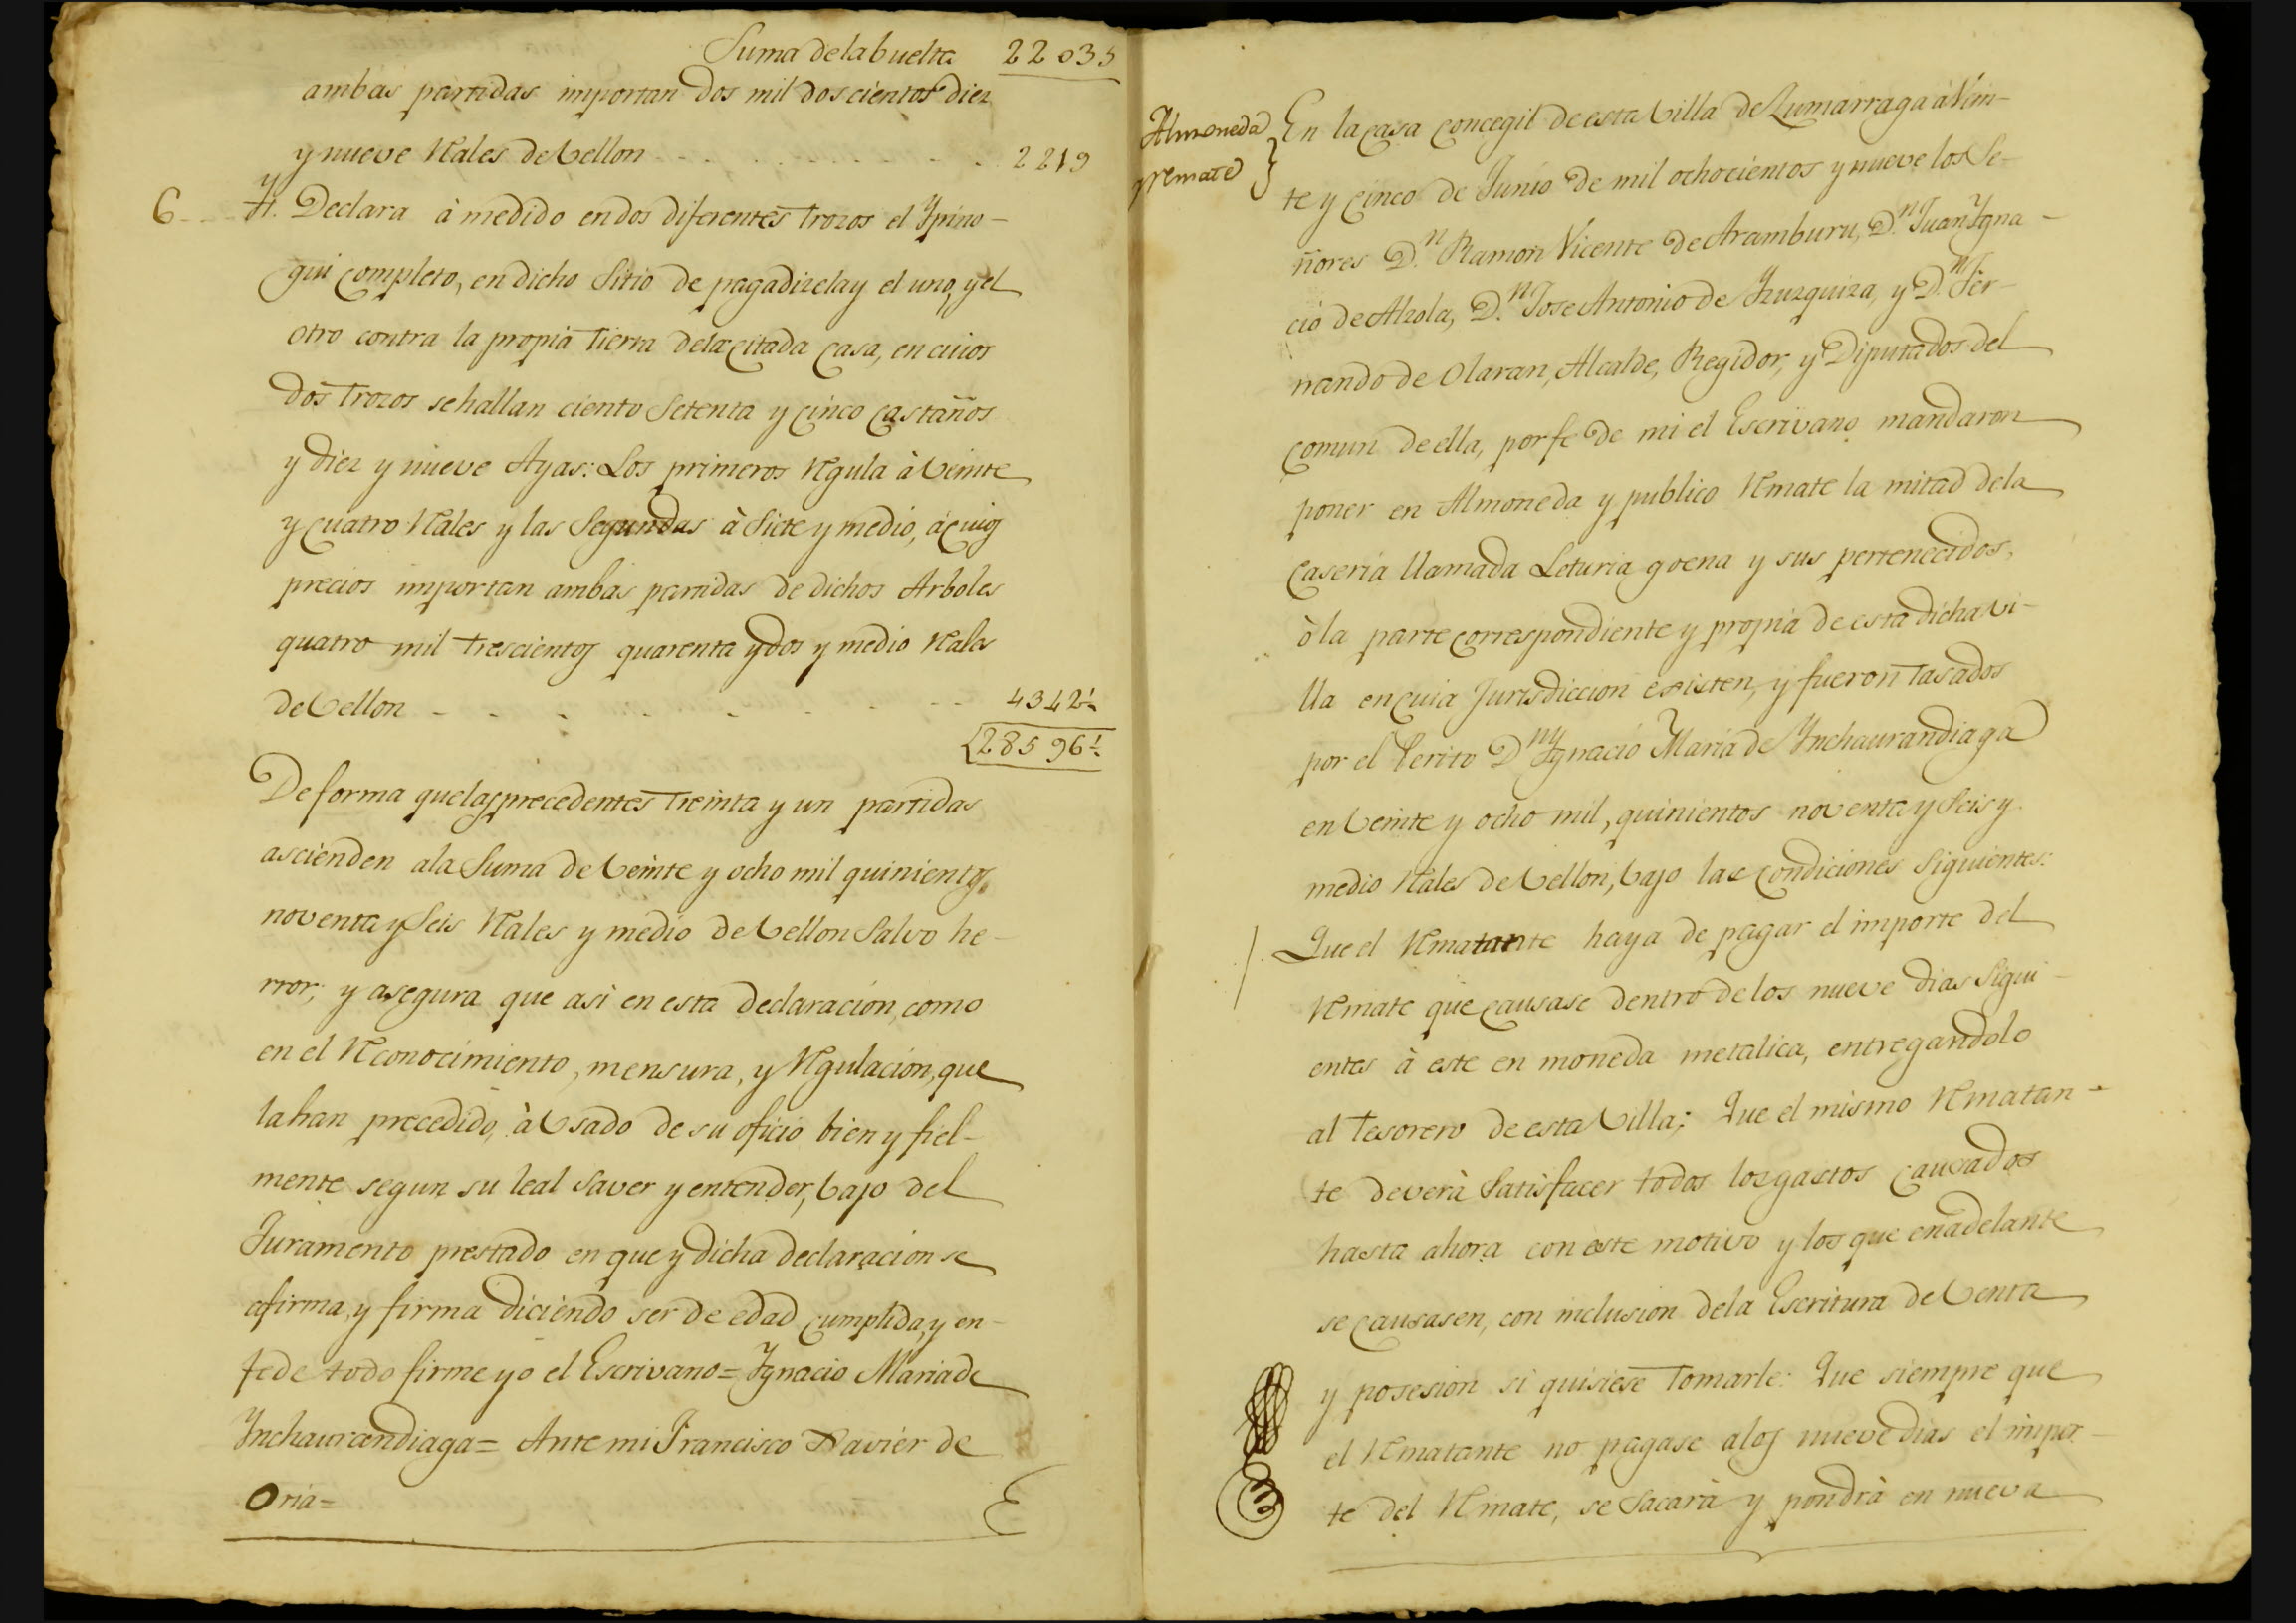 Suma de la buelta 22035
ambas partidas importan dos mil doscientos diez
y nueve Rales de Vellon - - - - - - 2219
6 - - Yt. Declara à medido en dos diferentes trozos el Ypino-
gui completo, en dicho Sitio de pagadizelay el uno, y el
otro contra la propia tierra de la citada Casa, en cuios
dos trozos se hallan ciento Setenta y Cinco Castaños
y diez y nueve Ayas: Los primeros Regula à Veinte
y Cuatro Rales y las Segundas à Siete y medio, á Cuios
precios importan ambas partidas de dichos Arboles
quatro mil trescientos quarenta y dos y medio Rales
de Vellon - - - - - - - 4342½
28596½
De forma que las precedentes treinta y un partidas
ascienden a la Suma de Veinte y ocho mil quinientos
noventa y Seis Rales y medio de Vellon Salvo he-
rror; y asegura que asi en esta declaracion, como
en el Reconocimiento, mensura, y Regulacion, que
la han precedido, à Usado de su oficio bien y fiel-
mente segun su leal Saver y entender, bajo del
Juramento prestado en que y dicha declaracion se
afirma, y firma diciendo ser de edad cumplida, y en-
fe de todo firme yo el Escrivano = Ygnacio Maria de
Ynchaurandiaga = Ante mi Francisco Xavier de
Oria =
Almoneda
y remate
En la Casa Concegil de esta Villa de Zumarraga à Vein-
te y Cinco de Junio de mil ochocientos y nueve los Se-
ñores D.n Ramon Vicente de Aramburu, D.n Juan Ygna-
cio de Alzola, D.n Jose Antonio de Yzuzquiza, y D.n Fer-
nando de Olaran, Alcalde, Regidor, y Diputados del
Comun de ella, por fe de mi el Escrivano mandaron
poner en Almoneda y publico Remate la mitad de la
Caseria llamada Leturia goena y sus pertenecidos,
ò la parte correspondiente y propia de esta dicha Vi-
lla en cuia Jurisdiccion existen, y fueron tasados
por el Perito D.n Ygnacio Maria de Ynchaurandiaga
en Veinte y ocho mil, quinientos noventa y Seis y
medio Rales de Vellon, bajo las Condiciones Siguientes:
1. Que el Rematante haya de pagar el importe del
Remate que Causase dentro de los nueve dias Sigui-
entes à este en moneda metalica, entregandolo
al tesorero de esta Villa; Que el mismo Rematan-
te deverà Satisfacer todos los gastos Causados
hasta ahora con este motivo y los que en adelante
se Causasen, con inclusion de la Escritura de Venta
y posesion si quisiese tomarle: Que siempre que
el Rematante no pagase a los nueve dias el impor-
te del Remate, se Sacarà y pondrà en nueva